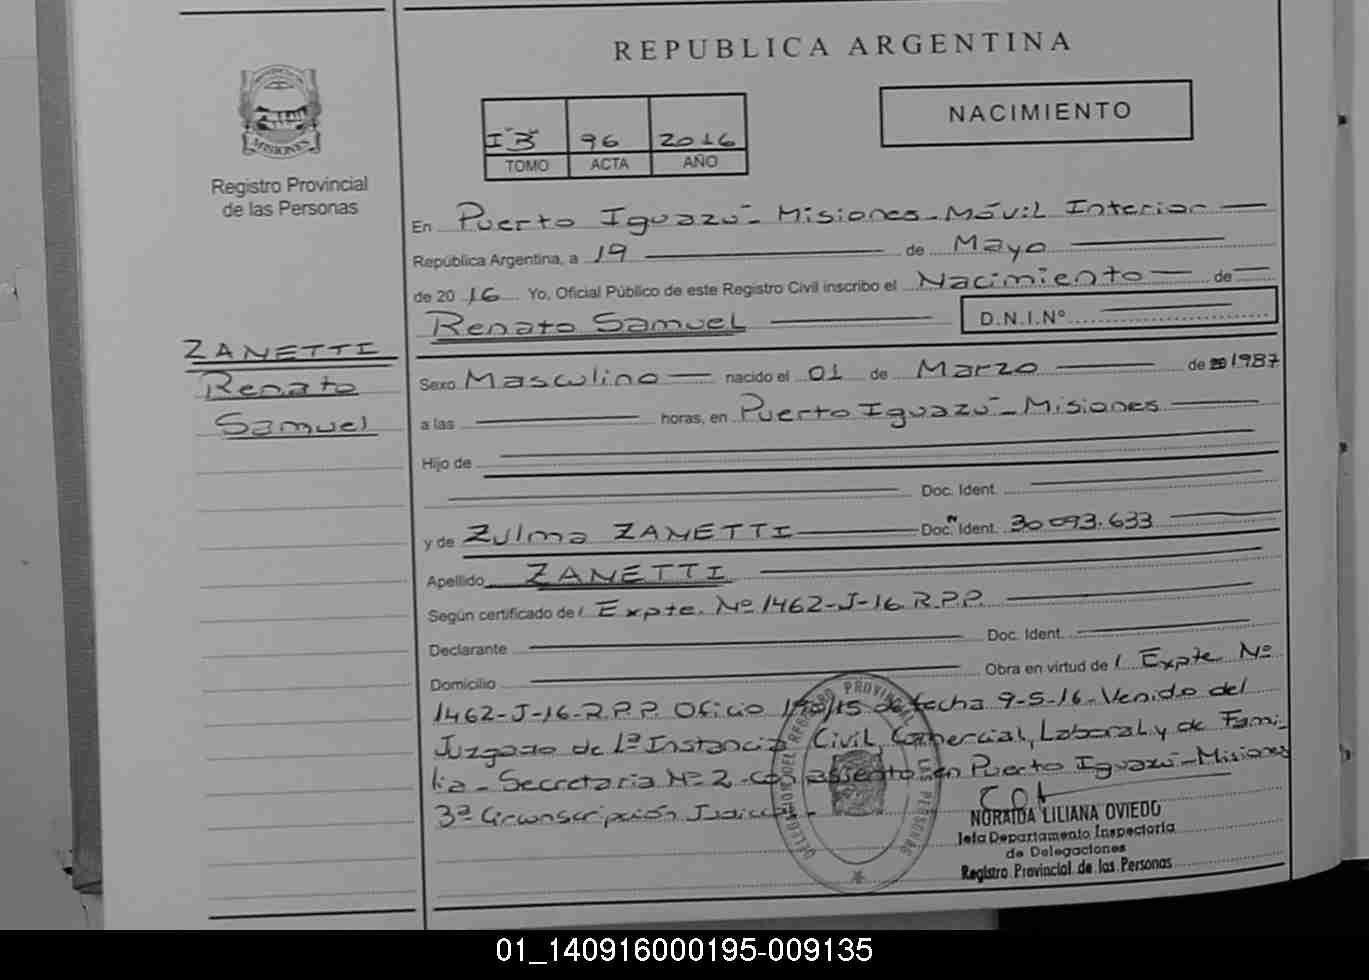 REPUBLICA ARGENTINA
NACIMIENTO
I"B" 96 2016
TOMO ACTA AÑO
MISIONES
Registro Provincial
de las Personas
En Puerto Iguazú - Misiones - Móvil Interior
República Argentina, a 19 de Mayo
de 2016 Yo, Oficial Público de este Registro Civil inscribo el Nacimiento de
Renato Samuel D.N.I.Nº
ZANETTI
Renato
Samuel
Sexo Masculino nacido el 01 de Marzo de 1987
a las horas, en Puerto Iguazú - Misiones
Hijo de
Doc. Ident.
y de Zulma ZANETTI Doc. Ident. 30 093.633
Apellido ZANETTI
Según certificado de Expte. Nº 1462-J-16 R.P.P.
Declarante Doc. Ident.
Domicilio Obra en virtud de Expte Nº
1462-J-16-R.P.P. Oficio de fecha 9-5-16-Venido del
Juzgado de 1ª Instancia Civil, Comercial, Laboral y de Fami-
lia - Secretaria Nº 2 - con asiento en Puerto Iguazú - Misiones
3ª Circunscripción Judicial -
DELEGACION DEL REGISTRO PROVINCIAL DE LAS PERSONAS
NORAIDA LILIANA OVIEDO
Jefa Departamento Inspectoría
de Delegaciones
Registro Provincial de las Personas
01_140916000195-009135